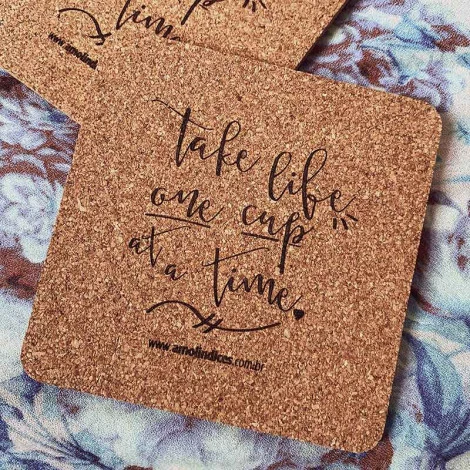 time
www.amolindices
take life
one cup
at a time
www.amolindices.com.br